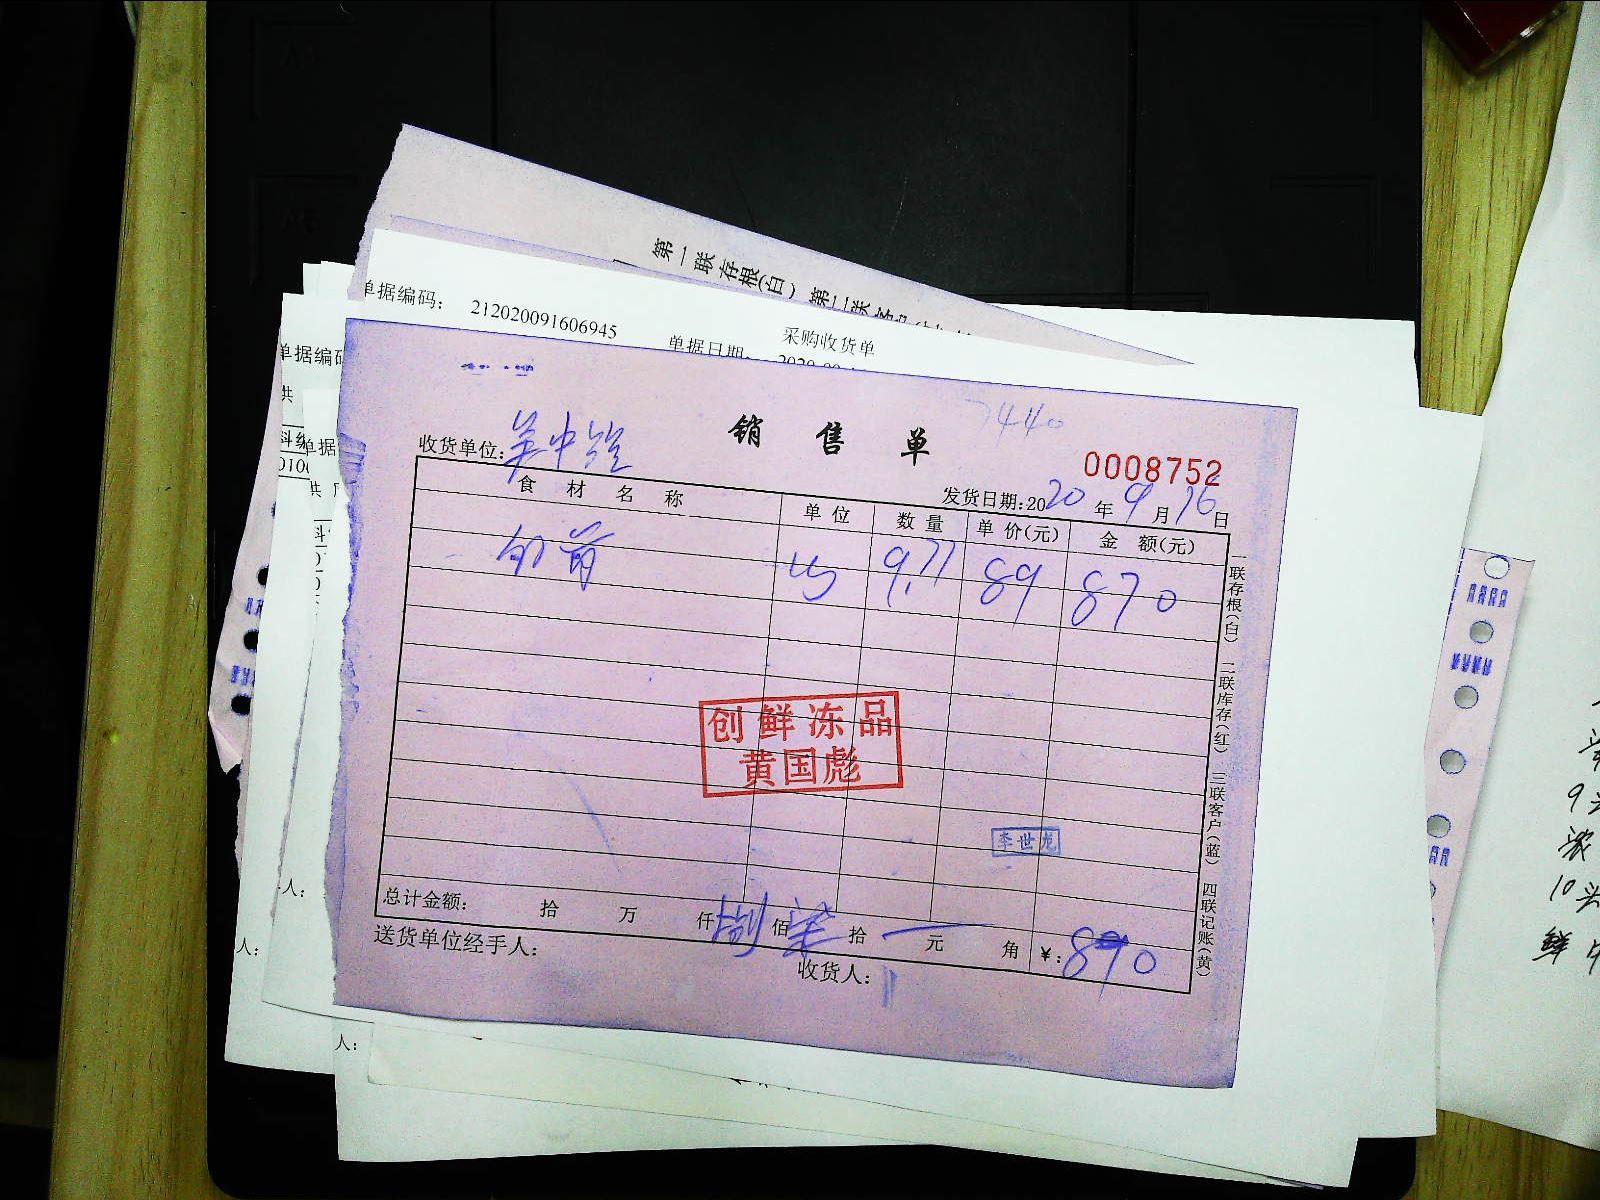 第一联存根(白) 第二联客户
单据编码: 212020091606945
采购收货单
单据日期:
单据编码
供
单据
供
7440
销售单
收货单位:吴中
0008752
发货日期:2020年9月16日
食材名称 单位 数量 单价(元) 金额(元)
9.77 89 870
创鲜冻品
黄国彪
李世龙
总计金额: 拾 万 仟 捌佰柒拾一元 角 ¥:870
送货单位经手人:
收货人:
一联存根(白) 二联库存(红) 三联客户(蓝) 四联记账(黄)
人:
人:
人:
9头
浓
10头
鲜牛